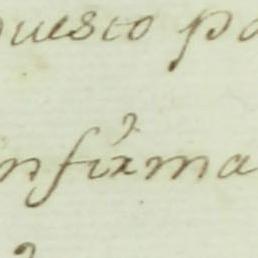 puesto po
nfirma